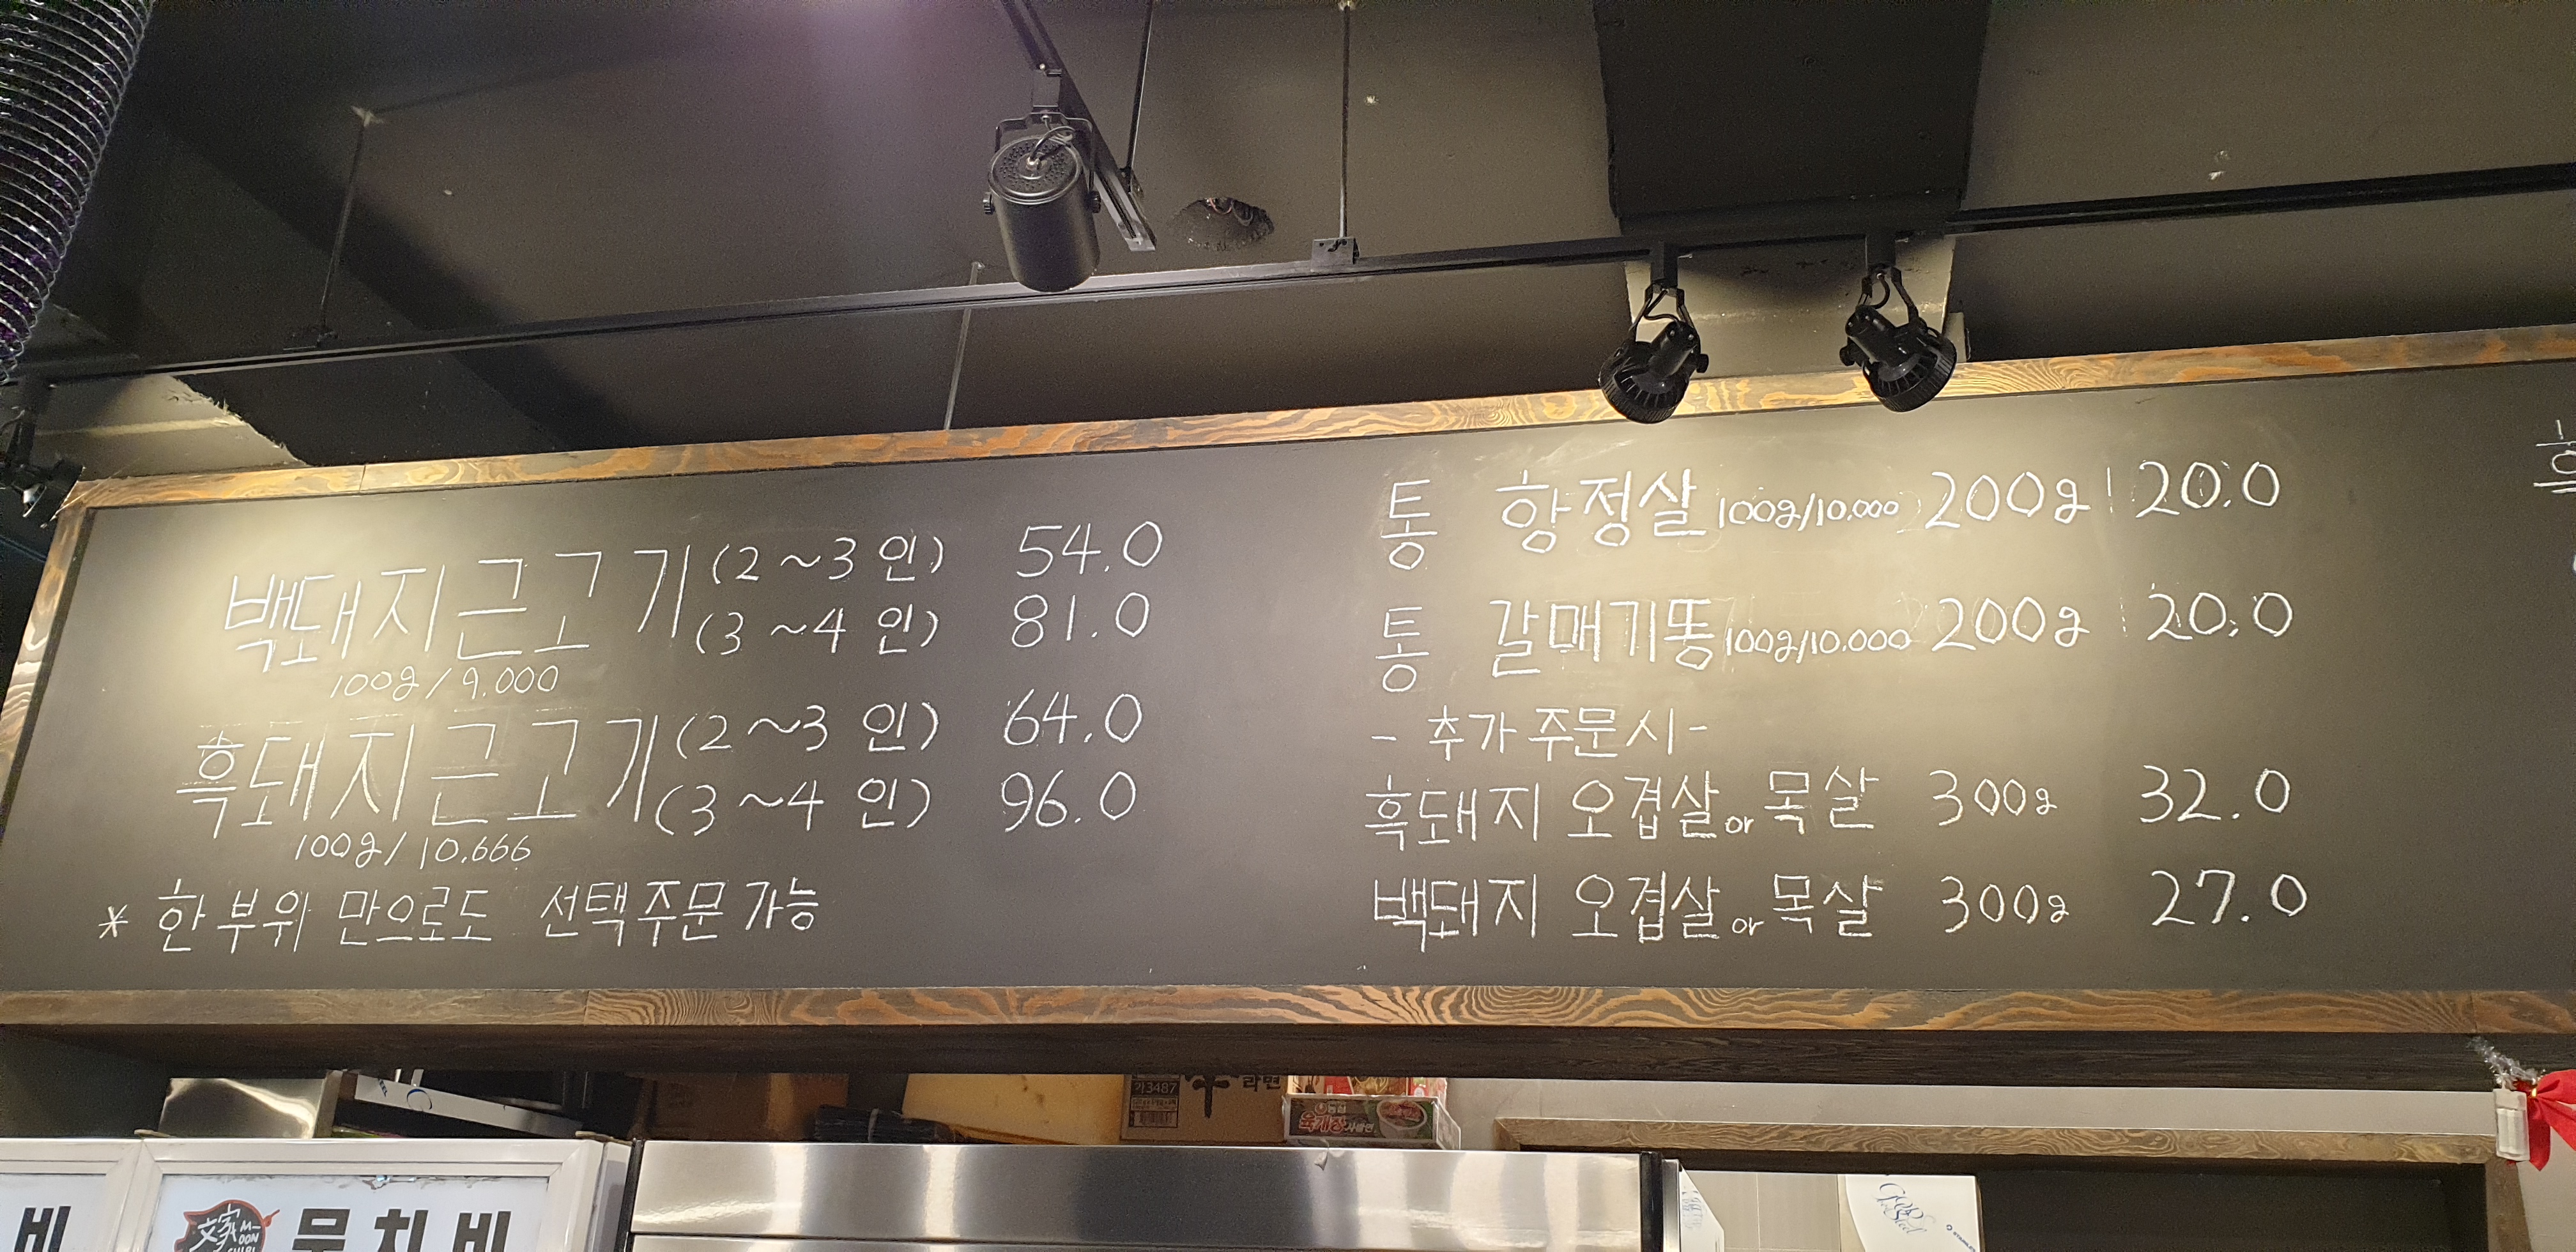 백돼지근고기 (2~3 인) 54.0
(3~4 인) 81.0
100g/9.000
흑돼지근고기 (2~3 인) 64.0
(3~4 인) 96.0
100g/10.666
* 한부위 만으로도 선택주문가능
통 항정살 100g/10.000 200g 20.0
통 갈매기똥 100g/10.000 200g 20.0
- 추가주문시 -
흑돼지 오겹살 or 목살 300g 32.0
백돼지 오겹살 or 목살 300g 27.0
흑
가3487
라면
육개장 사발면
비
文家 M-OON
문치비